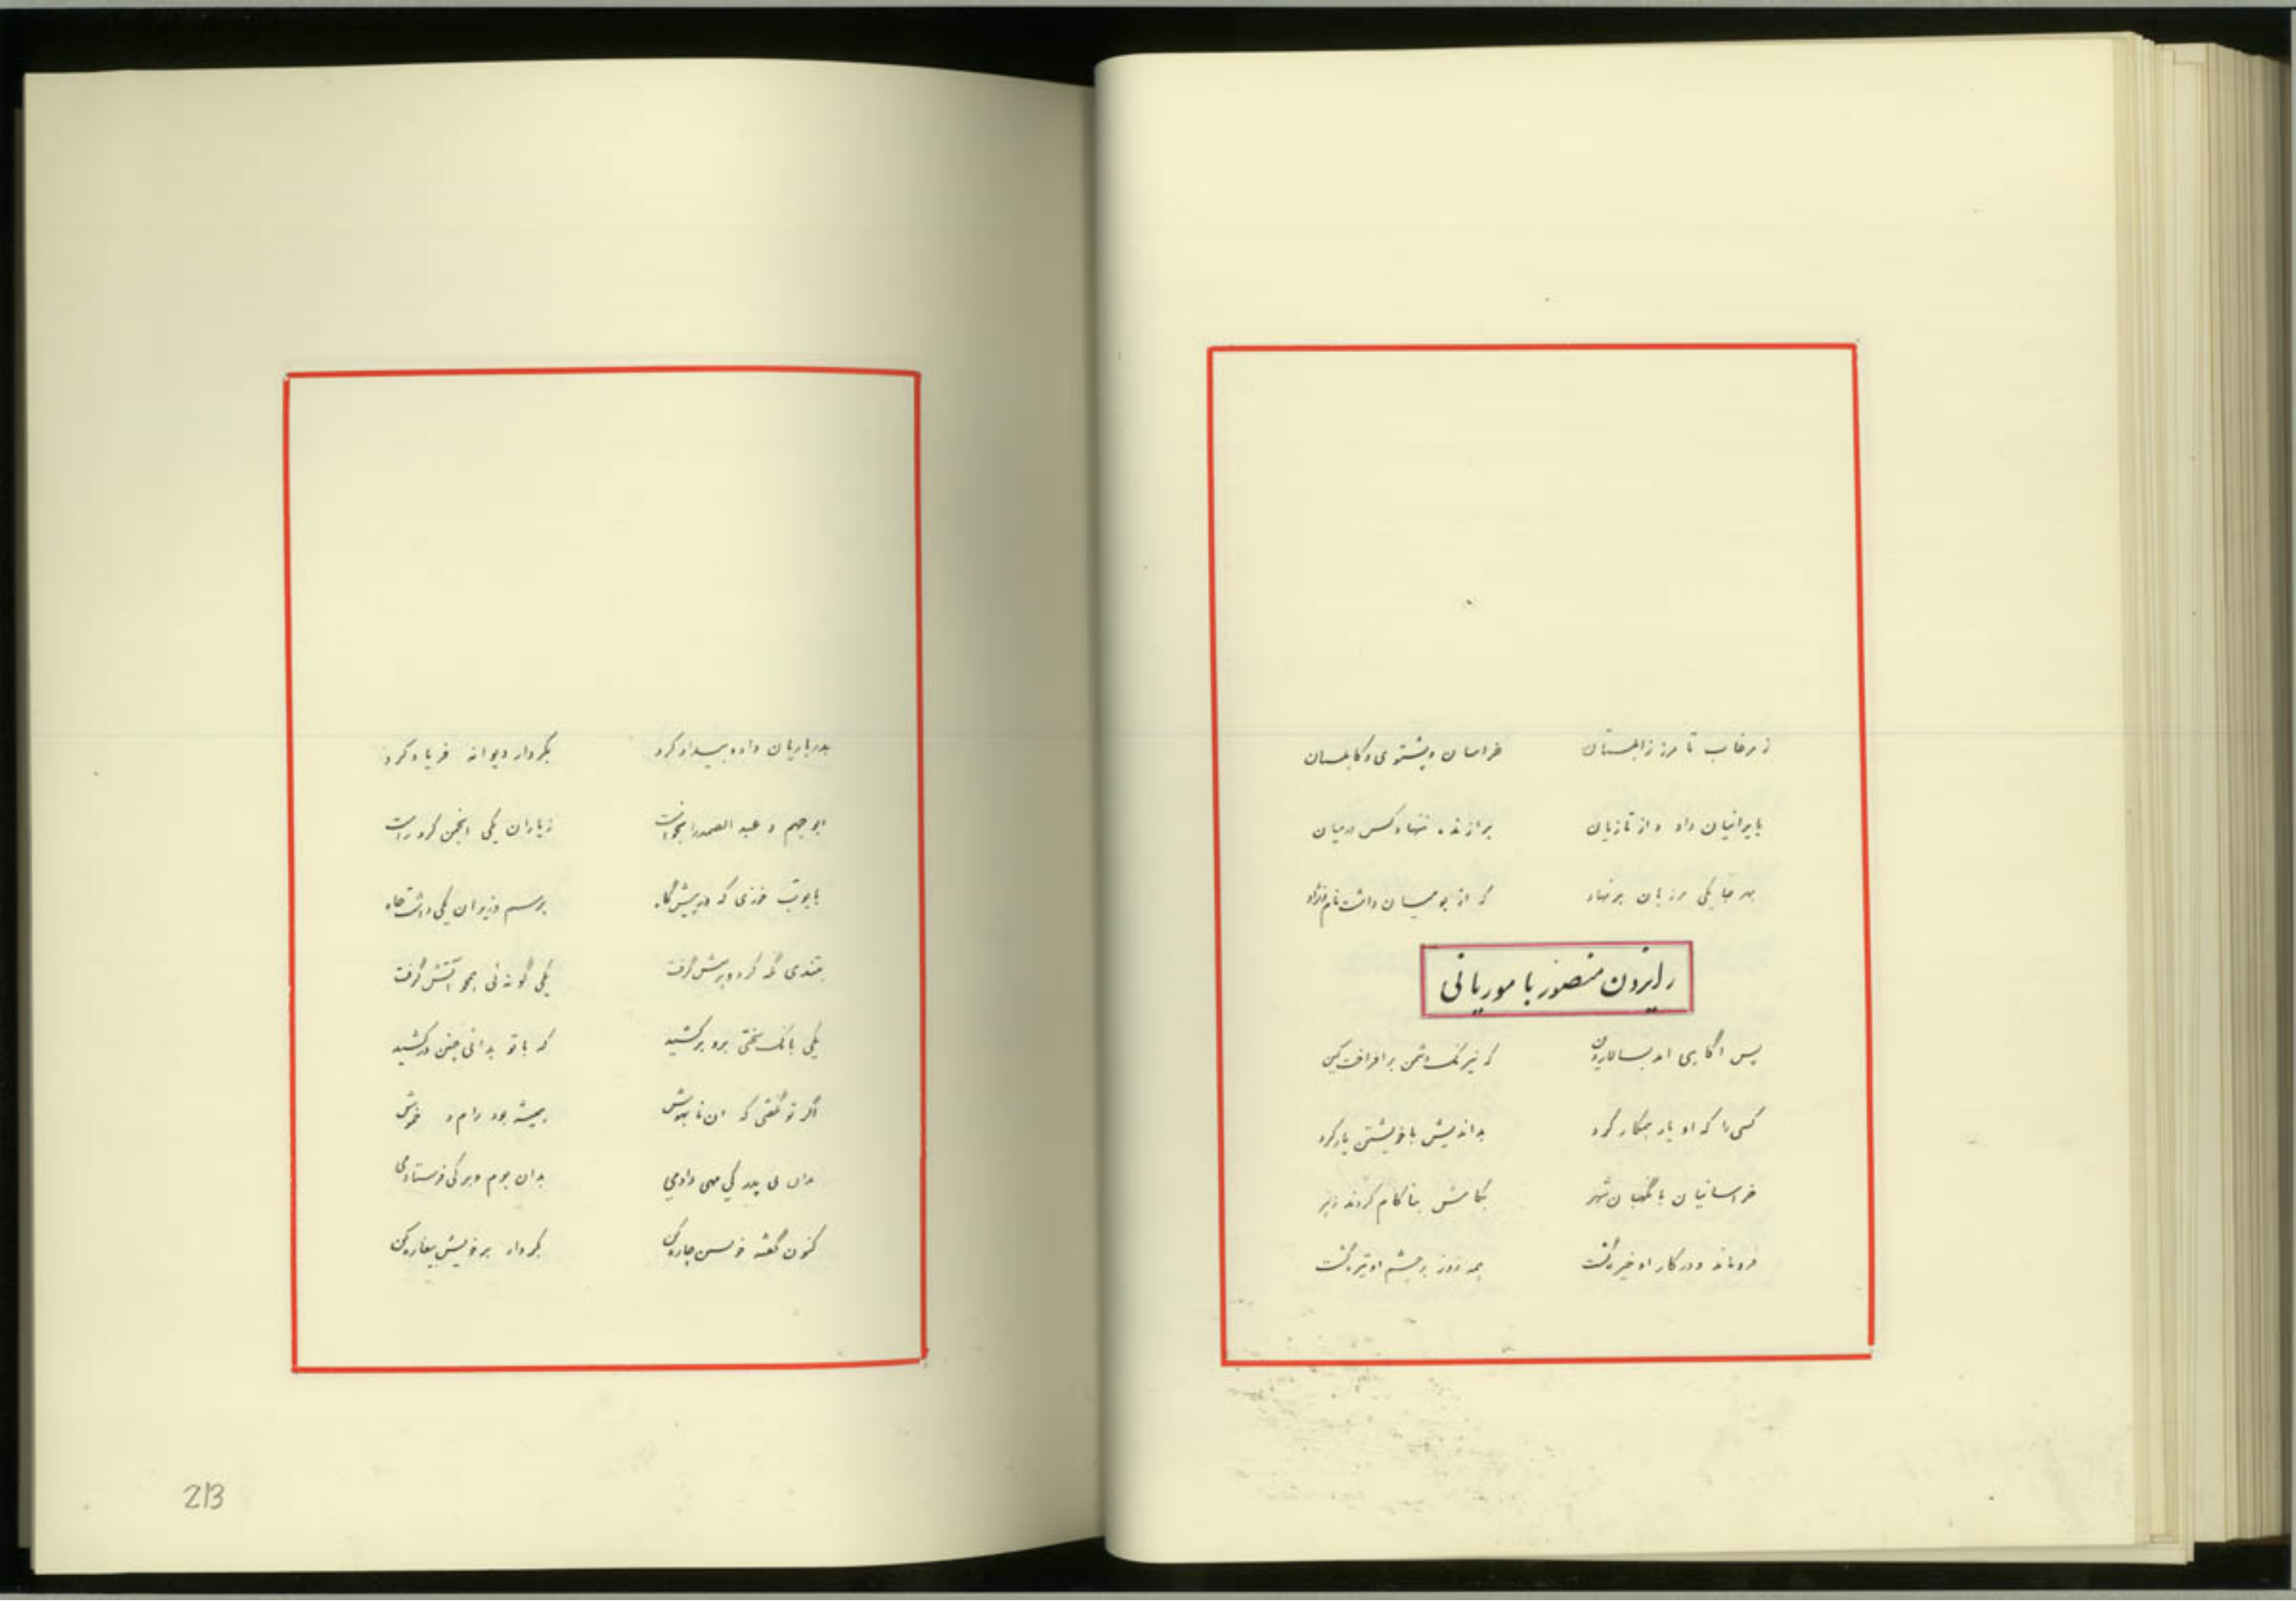 ز مرغاب تا مرز زابلستان خراسان و پشتوی و کابلستان
بایرانیان داد و از تازیان برازنده ننهاد کس در میان
بهر جا یکی مرزبان بر نهاد که از بومیان داشت نام و نژاد
رایزدن منصور با موریانی
پس آگاهی آمد که نیرنگ دشمن بر افراخت کین
کسی را که او یار همکار کرد بداندیش با خویشتن یار کرد
خراسانیان با نگهبان شهر بکامش بناکام کردند زهر
فرو ماند و در کار او خیره گشت همه روز بر چشم او تیره گشت
بدرباریان داد و بیداد کرد بکردار دیوانه فریاد کرد
ابو جهم و عبد الصمد را بخواست زیاران یکی انجمن کرد راست
بایوب خوزی که در پیشگاه برسم وزیران یکی داشت جاه
بتندی نگه کرد و پرسش گرفت یکی گونه ئی همچو آتش گرفت
یکی بانگ سختی برو بر کشید که با تو بدانی چنین در کشید
اگر تو نگفتی که آن نا بهوش همیشه بود رام و خموش
بدان بوم و بر کی فرستادمی
کنون گفته خویشتن چاره کن بکردار بر خویش بیغاره کن
213